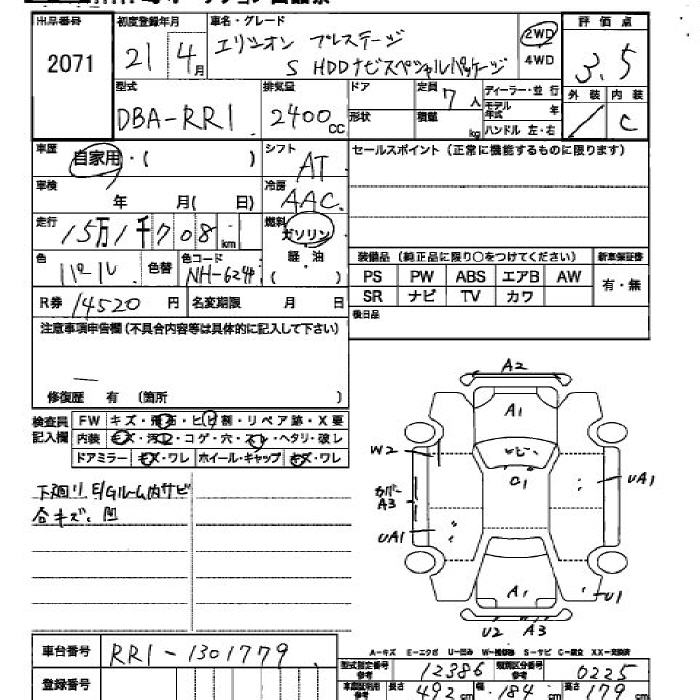 出品番号 初度登録年月 車名・グレード 評価点
2071 21 4月 エリシオン プレステージ 2WD 3.5
S HDDナビスペシャルパッケージ 4WD
外装 内装
型式 排気量 ドア 定員 7人 ディーラー・並行
DBA-RR1 2400cc 形状 積載 kg モデル年式 年 C
ハンドル 左・右
車歴 自家用・( ) シフト AT セールスポイント(正常に機能するものに限ります)
車検 年 月( 日) 冷房 AAC
走行 15万1千708km 燃料 ガソリン
軽・油
( )
装備品(純正品に限り○をつけてください) 新車保証書
色 パール 色替 色コード NH-624P PS PW ABS エアB AW 有・無
R券 14520円 名変期限 月 日 SR ナビ TV カワ
後日品
注意事項申告欄(不具合内容等は具体的に記入して下さい)
修復歴 有(箇所 )
検査員記入欄 FW キズ・飛石・ヒビ割・リペア跡・X要
内装 キズ・汚レ・コゲ・穴・スレ・ヘタリ・破レ
ドアミラー キズ・ワレ ホイール・キャップ キズ・ワレ
下廻り E/Gルーム内サビ
合キズ、凹
A2
A1
W2 ヒビ
G1
カバー A3 UA1
UA1
A1 U1
U2 A3
A-キズ E-エクボ U-凹み W-補修跡 S-サビ C-腐食 XX-交換済
車台番号 RR1-1301779
型式指定番号 参考 12386 類別区分番号 参考 0225
登録番号 長さ 492cm 幅 184cm 高さ 179cm